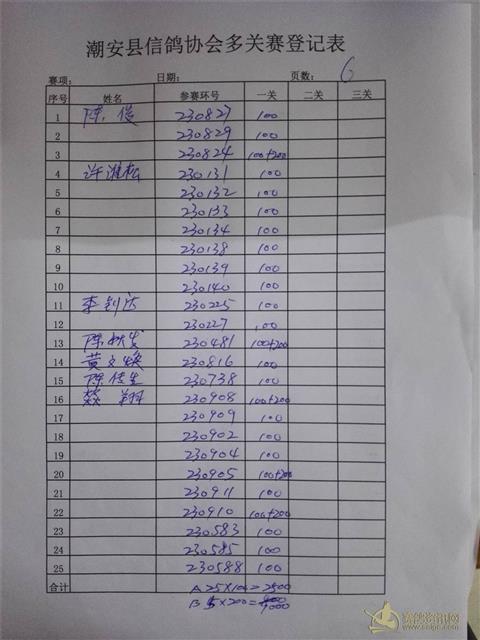 潮安县信鸽协会多关赛登记表
赛项: 日期: 页数: 6
序号 姓名 参赛环号 一关 二关 三关
1 陈俊 230827 100
2 230829 100
3 230824 100+200
4 许淮松 230131 100
5 230132 100
6 230133 100
7 230134 100
8 230138 100
9 230139 100
10 230140 100
11 李钊达 230225 100
12 230227 100
13 陈 230481 100+200
14 黄文焕 230816 100
15 陈佳生 230738 100
16 翔 230908 100+200
17 230909 100
18 230902 100
19 230904 100
20 230905 100+200
21 230911 100
22 230910 100+200
23 230583 100
24 230585 100
25 230588 100
合计 A 25×100=2500
B 5×200=1000